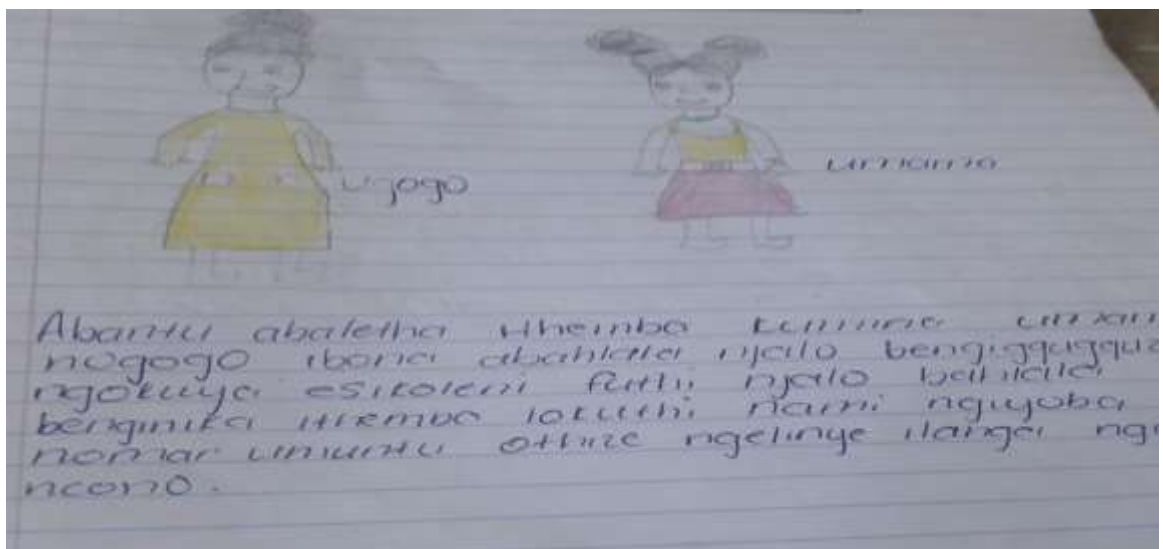 ugogo
umama
Abantu abaletha ithemba kumina umam
nogogo ibona abahlala njalo bengigqugquz
ngokuya esikoleni futhi njalo bahlala
benginika ithemba lokuthi nami ngiyoba
nomar umuntu othize ngelinye ilanga ng
ncono.